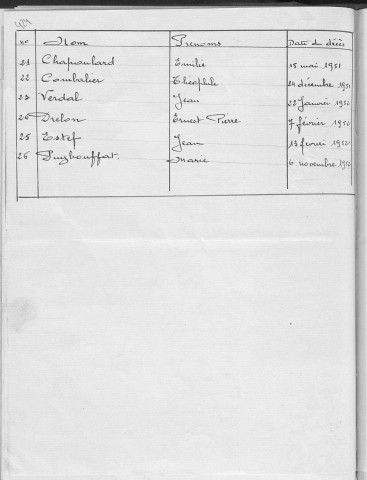 No Nom Prénoms Date du décès
21 Chapoulard Emilie 15 mai 1951
22 Combalier Théophile 24 décembre 1951
23 Verdal Jean 22 Janvier 1952
24 Drelon Ernest Pierre 7 février 1952
25 Estef Jean 13 février 1952
26 Puybouffat. Marie 6 novembre 1952